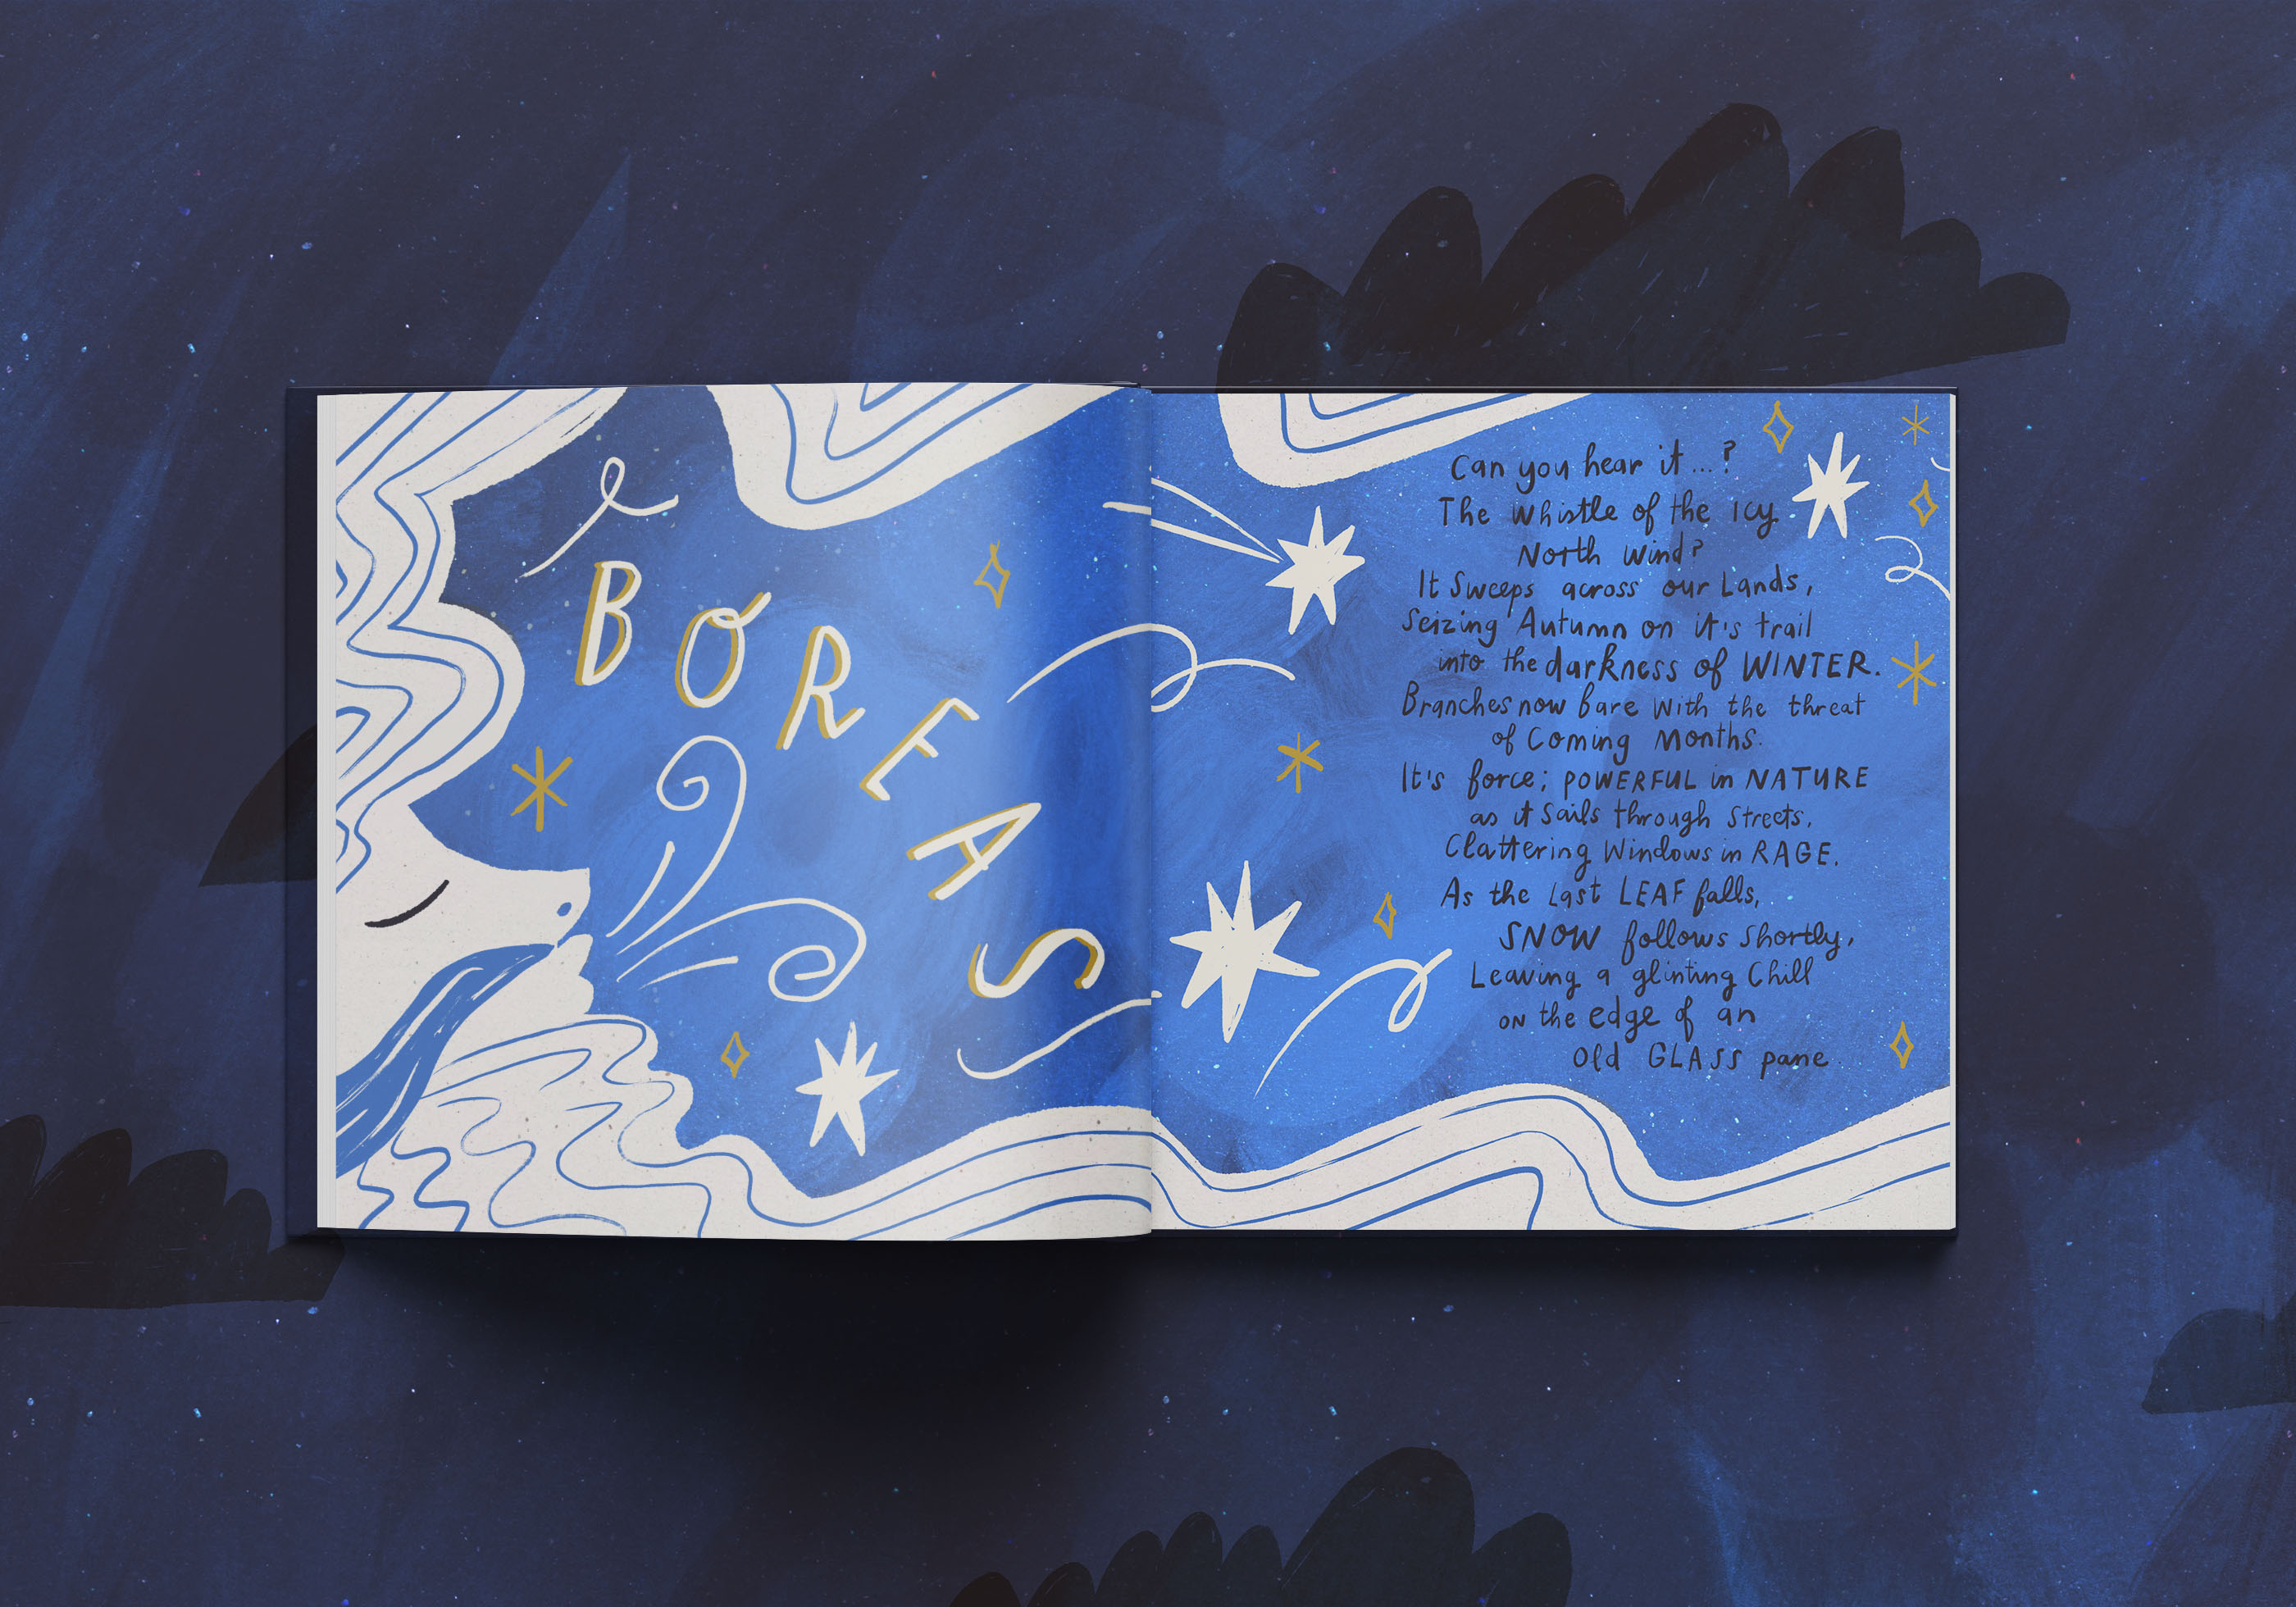 BOREAS
Can you hear it...?
The Whistle of the Icy
North Wind?
It Sweeps across our Lands,
Seizing Autumn on it's trail
into the darkness of WINTER.
Branches now bare with the threat
of Coming Months.
It's force; POWERFUL in NATURE
as it sails through streets,
Clattering Windows in RAGE.
As the last LEAF falls,
SNOW follows shortly,
Leaving a glinting Chill
on the edge of an
Old GLASS pane